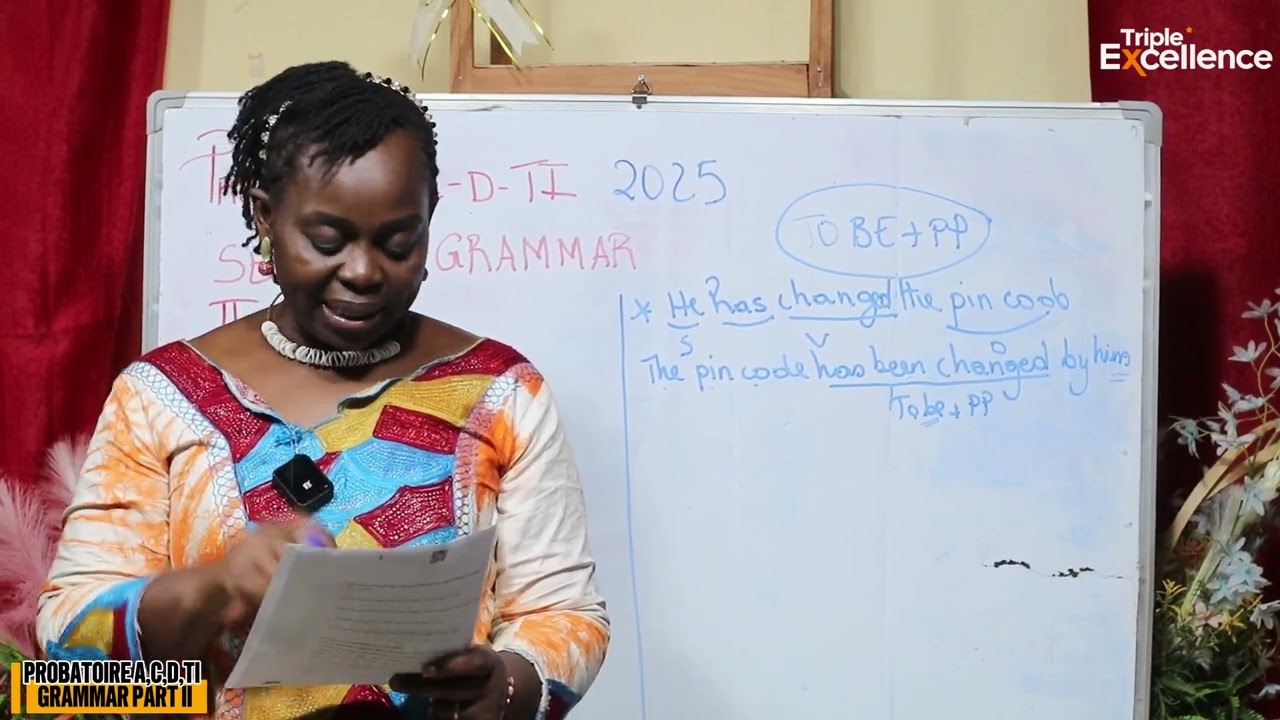 Triple
Excellence
-D-TI 2025
SE GRAMMAR
II
TO BE + PP
* He has changed the pin code
S V O
The pin code has been changed by him
To be + PP
PROBATOIRE A,C,D,TI
GRAMMAR PART II